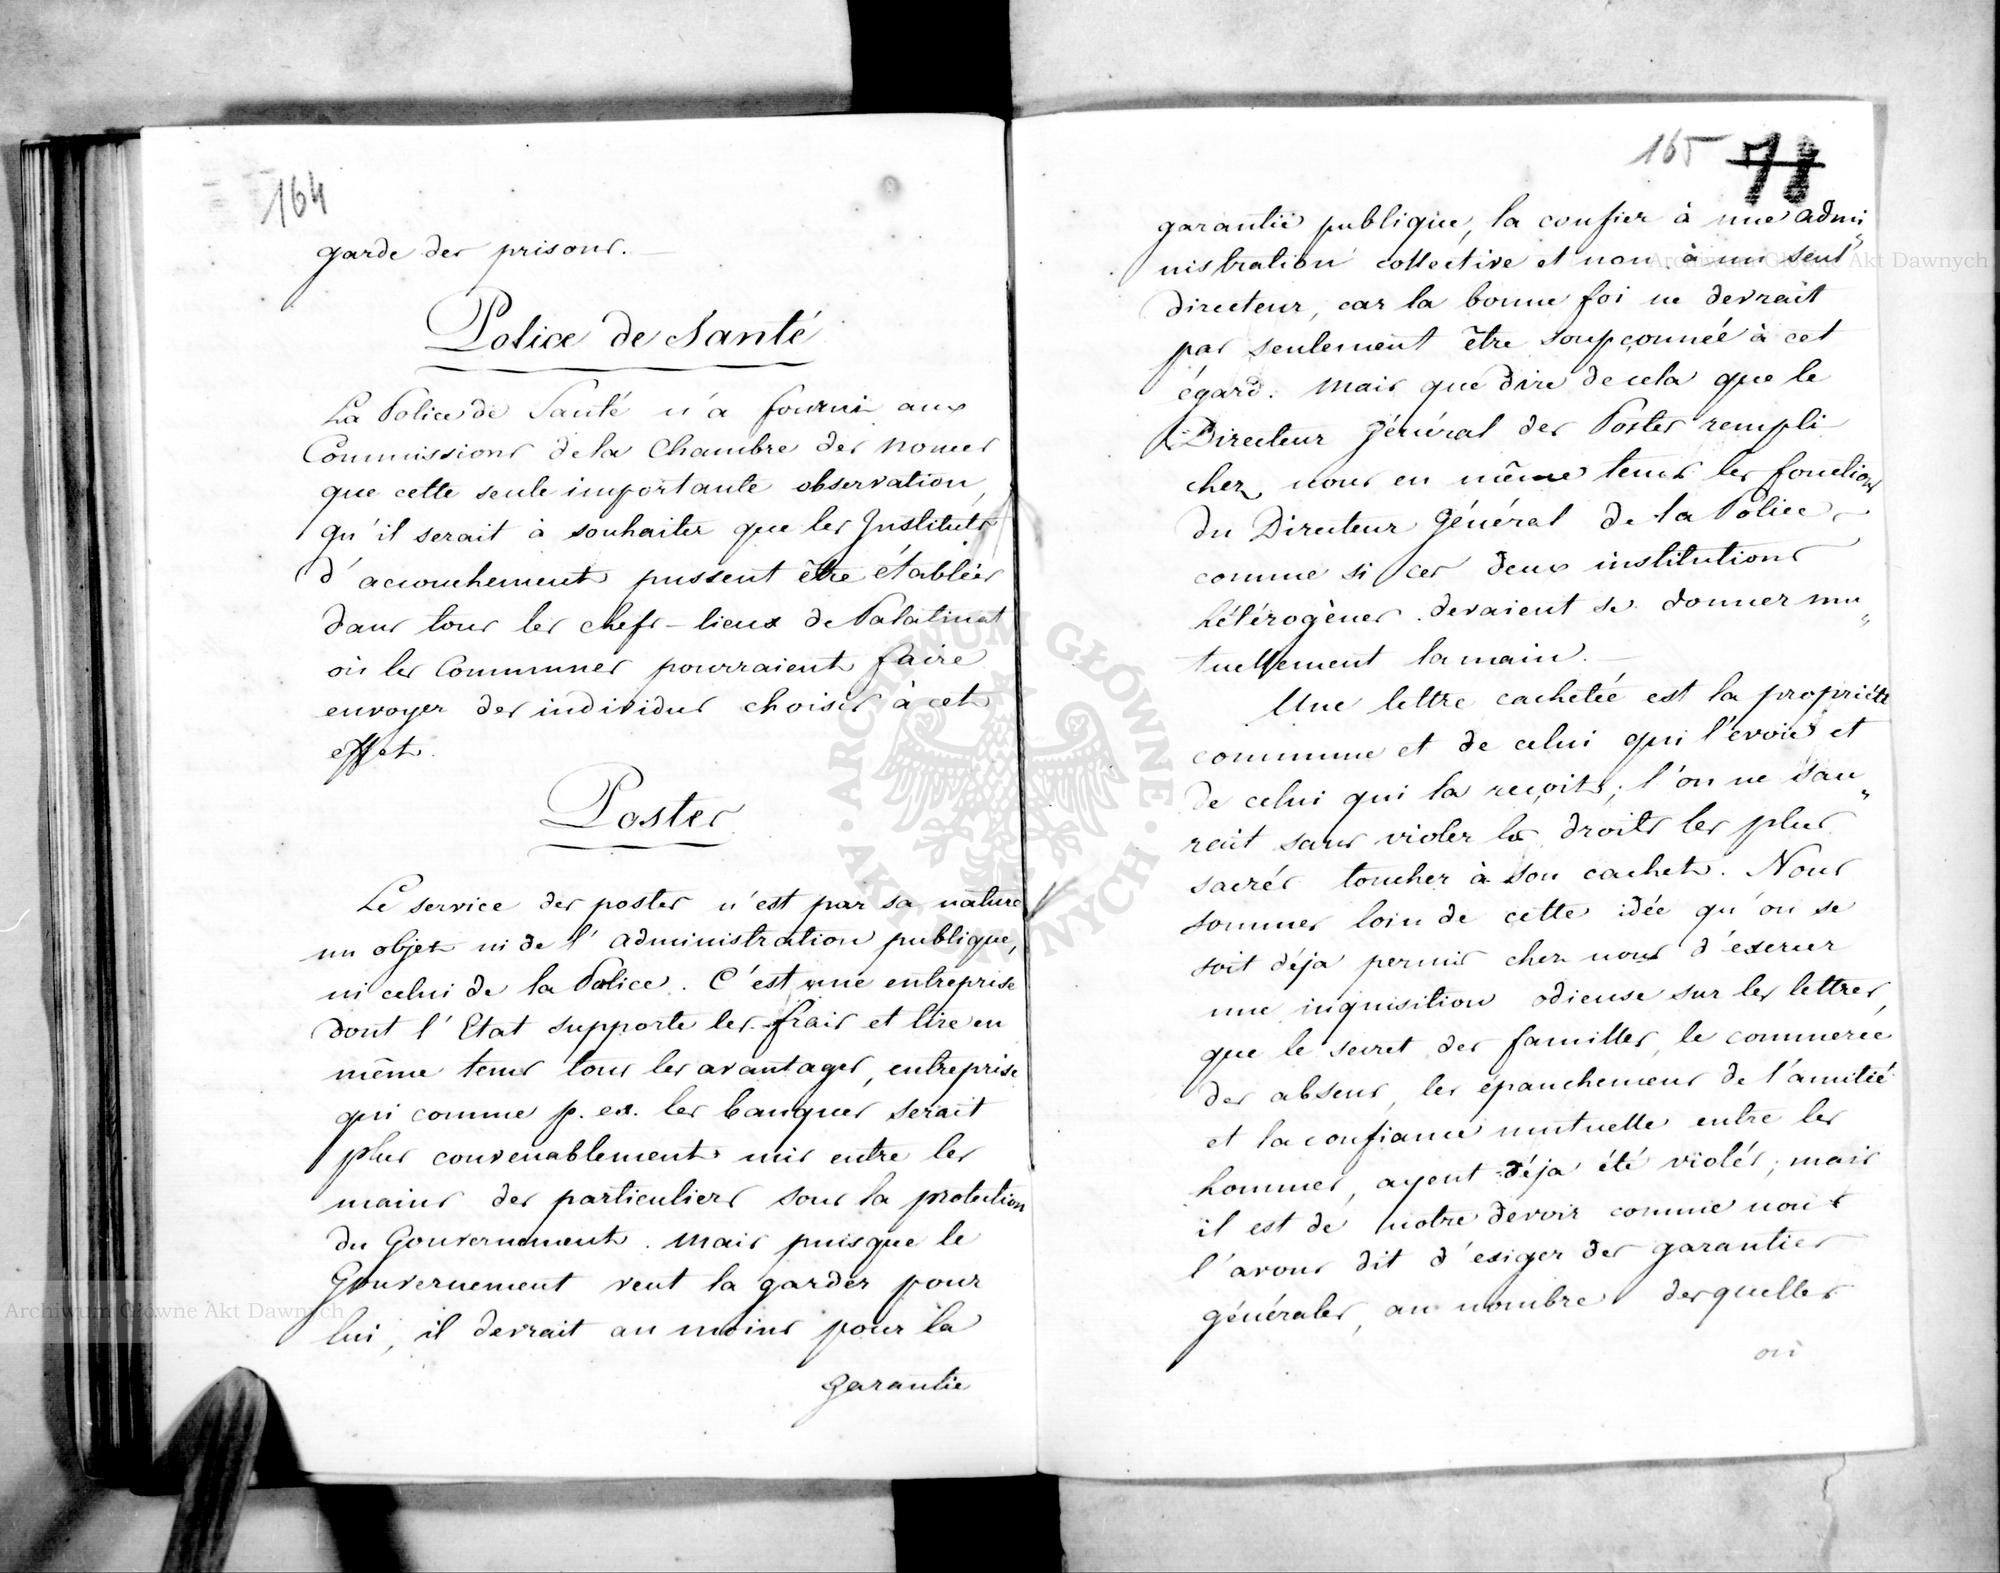 164
garde des prisons.
Police de Santé
La Police de Santé n'a fourni aux
Commissions de la Chambre des nonces
que cette seule importante observation,
qu'il serait à souhaiter que les Instituts
d'accouchement pussent être établies
dans tous les chefs-lieux de Palatinat
où les Communes pourraient faire
envoyer des individus choisis à cet
effet.
Postes
Le service des postes n'est par sa nature
un objet ni de l'administration publique,
ni celui de la Police. C'est une entreprise
dont l'Etat supporte les frais et tire en
même tems tous les avantages, entreprise
qui comme p. ex. les banques serait
plus convenablement mis entre les
mains des particuliers sous la protection
du Gouvernement. Mais puisque le
Gouvernement veut la garder pour
lui, il devrait au moins pour la
garantie
165 78
garantie publique, la confier à une admi„
nistration collective et non à un seul
directeur, car la bonne foi ne devrait
pas seulement être soupçonnée à cet
égard. Mais que dire de cela que le
Directeur Général des Postes rempli
chez nous en même tems les fonctions
du Directeur Général de la Police,
comme si ces deux institutions
hétérogènes devaient se donner mu„
tuellement la main.
Une lettre cachetée est la propriété
commune et de celui qui l'evoie et
de celui qui la reçoit; l'on ne sau„
rait sans violer les droits les plus
sacrés toucher à son cachet. Nous
sommes loin de cette idée qu'on se
soit déja permis chez nous d'exercer
une inquisition odieuse sur les lettres,
que le secret des familles, le commerce
des absens, les épanchemens de l'amitié
et la confiance mutuelle entre les
hommes, ayent déja été violés; mais
il est de notre devoir comme nous
l'avons dit d'exiger des garanties
générales, au nombre desquelles
où
Archiwum Główne Akt Dawnych
ARCHIWUM GŁÓWNE AKT DAWNYCH
Archiwum Główne Akt Dawnych